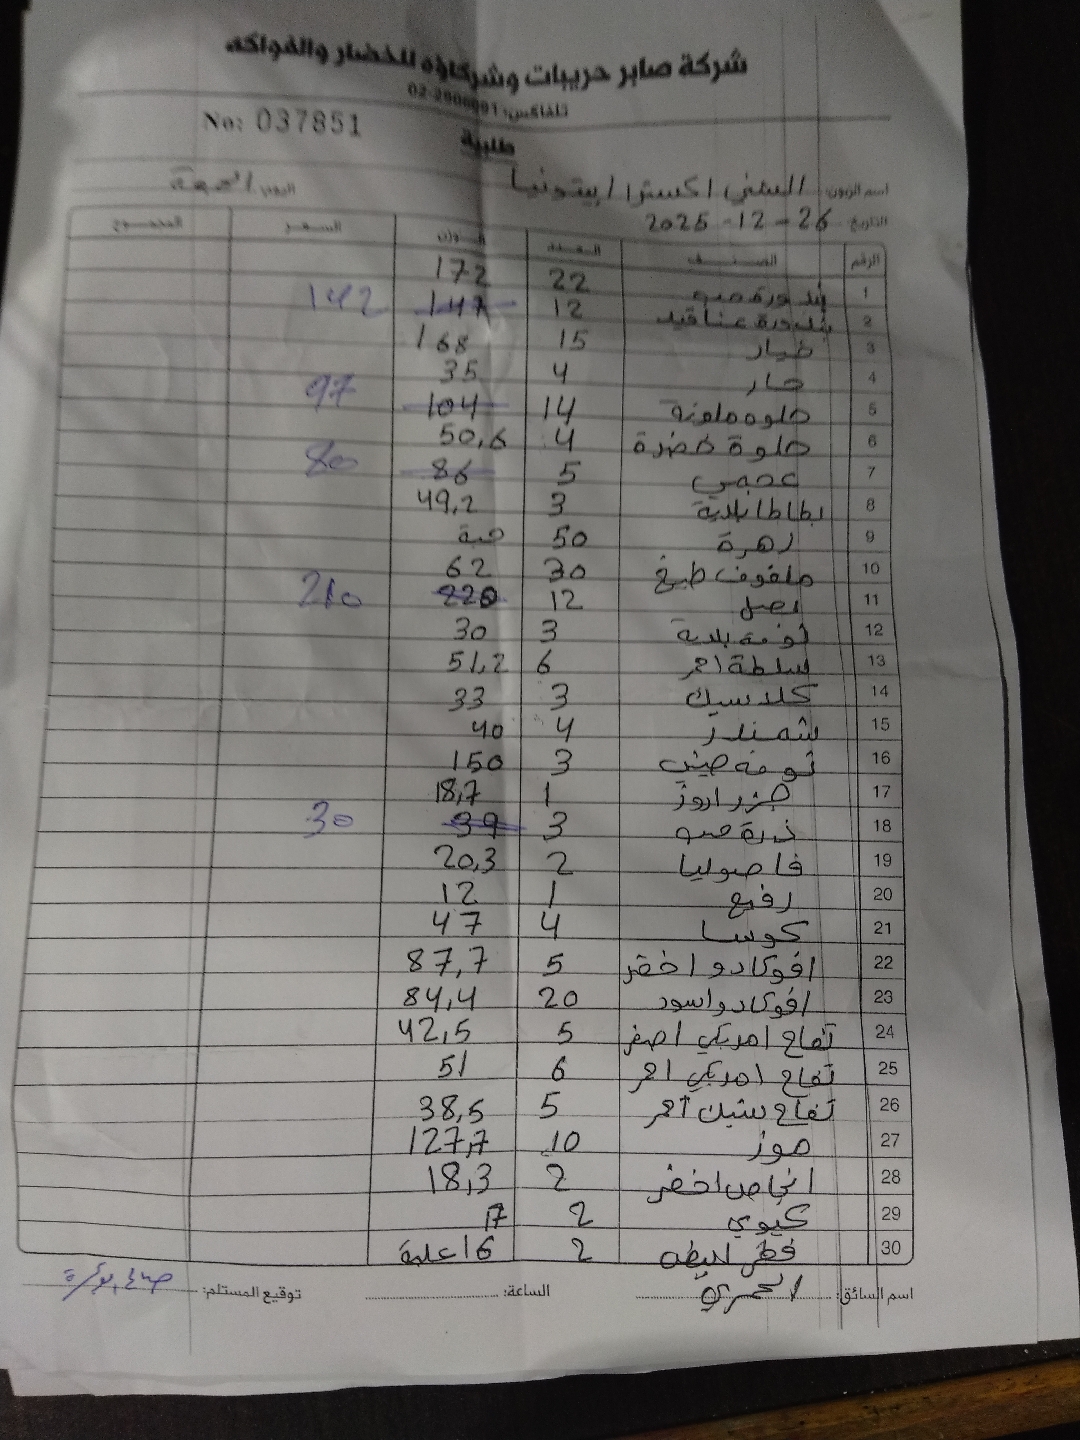 شركة صابر حريبات وشركاؤه للخضار والفواكه
تلفاكس: 02-2906091
No: 037851
طلبية
اسم الزبون: السني اكسترا / بيتونيا اليوم: الجمعة
التاريخ: 26-12-2025
الرقم الصنف العدد الوزن السعر المجموع
1 بندورة حبو 22 172
2 بندورة عناقيد 12 147 142
3 خيار 15 168
4 حار 4 35
5 حلوه ملونة 14 104 97
6 حلوة خضرة 4 50,6
7 عجمي 5 86 80
8 بطاطا بلدية 3 49,2
9 زهرة 50 حبة
10 ملفوف طبخ 30 62
11 بصل 12 220 210
12 ثومة بلدية 3 30
13 سلطة احمر 6 51,2
14 كلاسيك 3 33
15 شمندر 4 40
16 ثومه صيني 3 150
17 جزر اروز 1 18,7
18 ذرة حبو 3 39 30
19 فاصوليا 2 20,3
20 رفيع 1 12
21 كوسا 4 47
22 افوكادو اخضر 5 87,7
23 افوكادو اسود 20 84,4
24 تفاح امريكي اصفر 5 42,5
25 تفاح امريكي احمر 6 51
26 تفاح ستيك احمر 5 38,5
27 موز 10 127,7
28 انجاص اخضر 2 18,3
29 كيوي 2 17
30 فطر ابيض 2 16 علبة
اسم السائق: العمري الساعة: توقيع المستلم: